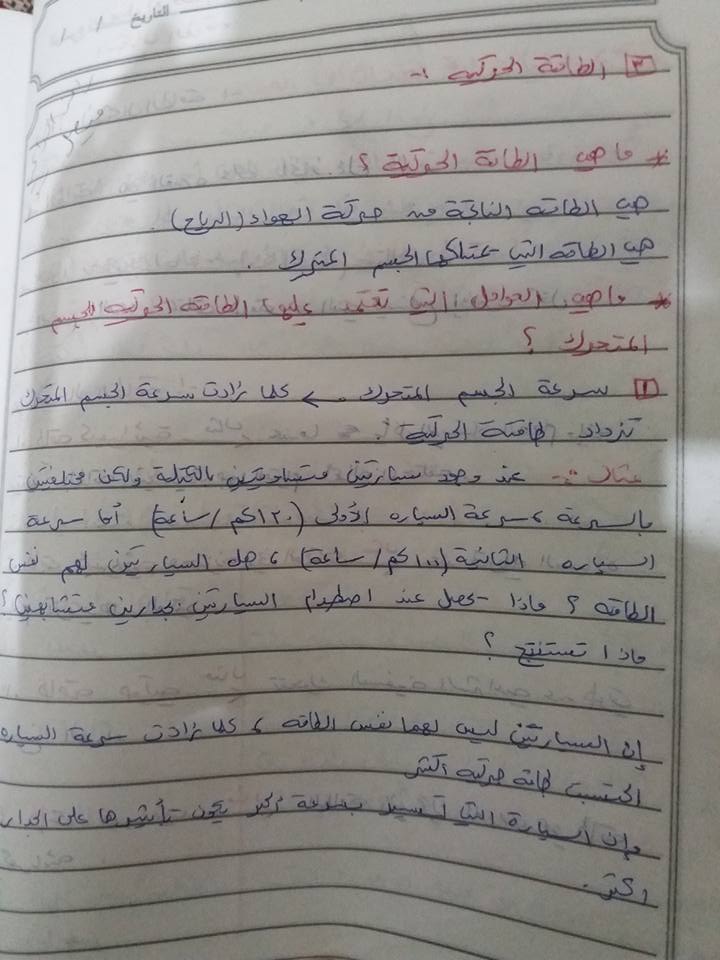 التاريخ / /
٣ الطاقة الحركية :-
* ما هي الطاقة الحركية ؟.
هي الطاقة الناتجة من حركة الهواء (الرياح).
هي الطاقة التي يمتلكها الجسم المتحرك .
* ما هي العوامل التي تعتمد عليها الطاقة الحركية للجسم
المتحرك ؟
١ سرعة الجسم المتحرك . ← كلما زادت سرعة الجسم المتحرك
تزداد طاقتة الحركية .
مثال :- عند وجود سيارتين متساويتين بالكتلة ولكن مختلفتين
بالسرعة ، سرعة السياره الأولى (١٢٠كم/ساعة) أما سرعة
السياره الثانية (١٠٠كم/ساعة) ، هل السيارتين لهم نفس
الطاقه ؟ ماذا يحصل عند اصطدام السيارتين بجدارين متشابهين ؟
ماذا تستنتج ؟
إن السيارتين ليس لهما نفس الطاقه ، كلما زادت سرعة السياره
اكتسبت طاقه حركيه أكثر
وإن السيارة التي تسير بسرعة أكبر يكون تأثيرها على الجدار
أكبر .